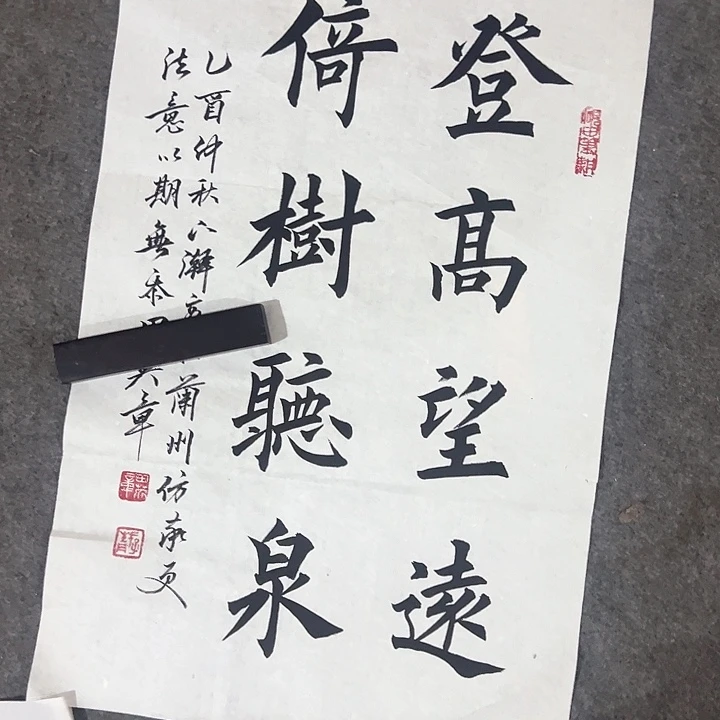 登高望遠
倚樹聽泉
乙酉仲秋八 蘭州仿
法意以期無忝 英章